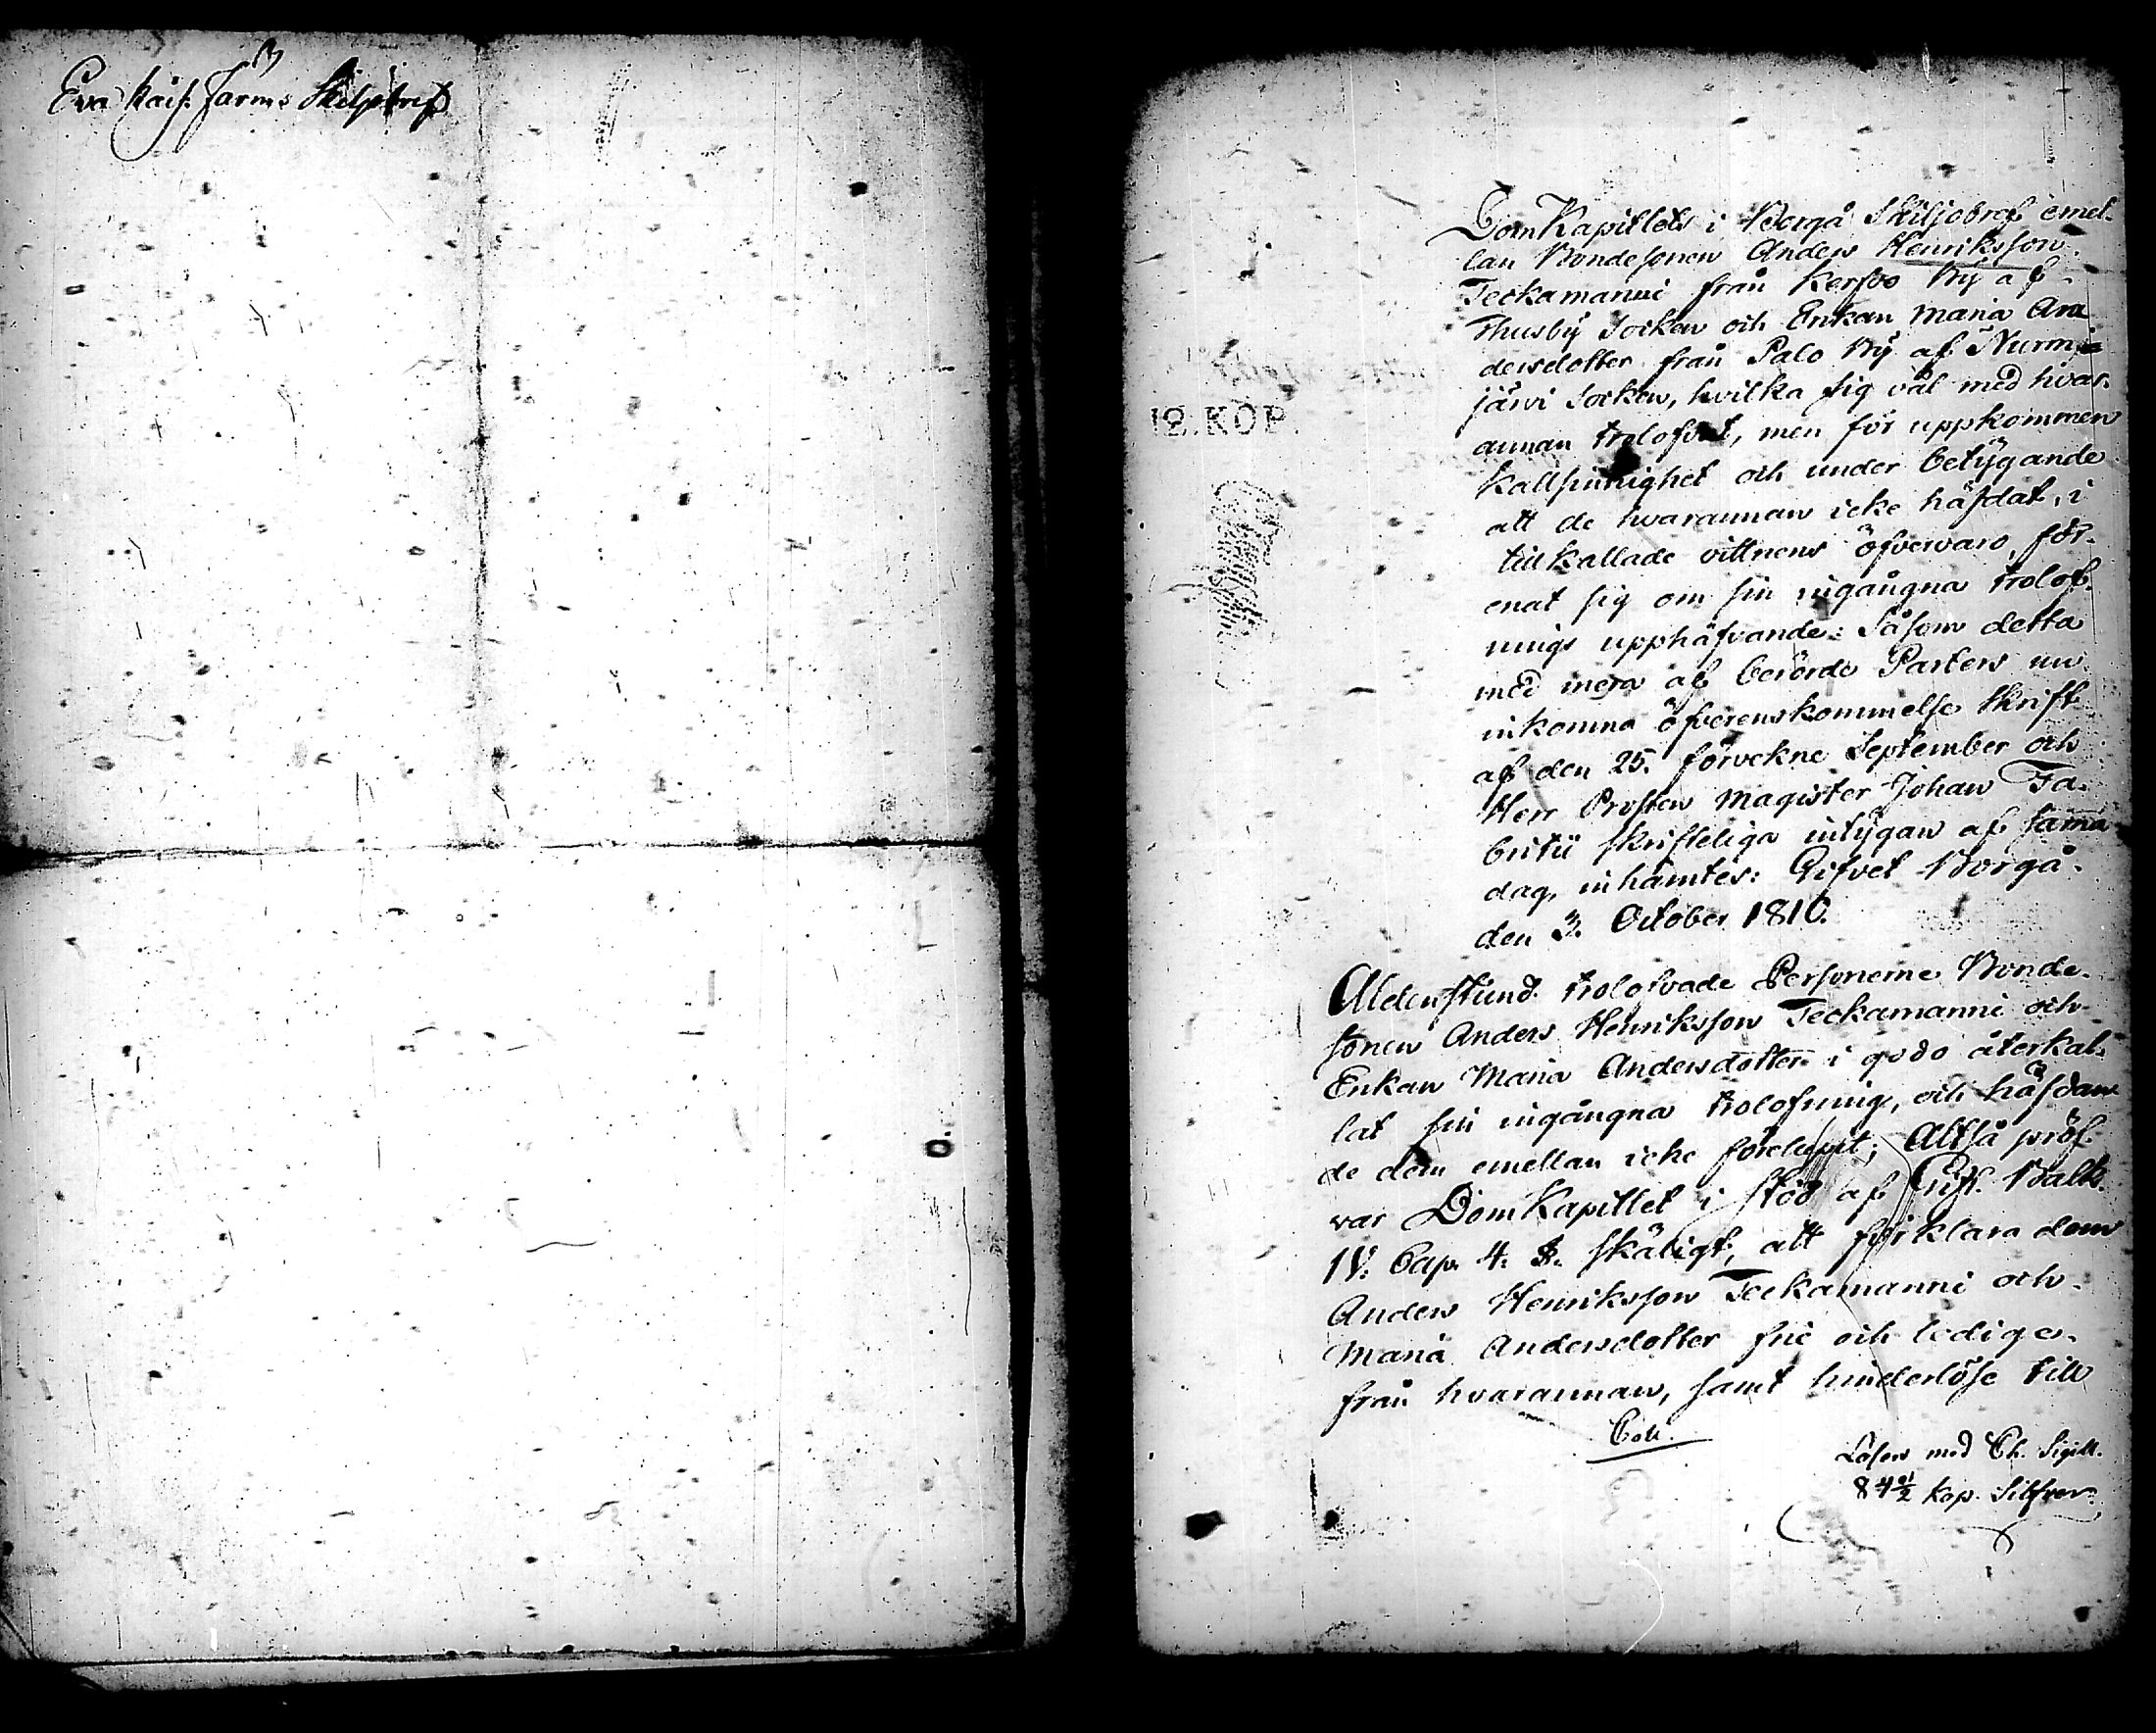 Eva Kais. Jarms Skiljobref
DomKapitlets i Borgå Skiljobref emel-
lan Bondesonen Anders Henriksson
Teckamanni från Kerso By af
Thusby Socken och Enkan Maria An-
dersdotter från Palo By af Nurmi-
järvi Socken, hvilka sig väl med hvar-
annan trolofvat, men för uppkommen
kallsinnighet och under betygande
att de hvarannan icke häfdat, i
tillkallade vittnens öfvervaro, för-
enat sig om sin ingångna trolof-
nings upphäfvande: Såsom detta
med mera af berörde Parters nu
inkomna öfverenskommelse Skrift
af den 25. förvekne September och
Herr Prosten Magister Johan Fa-
britii skrifteliga intygan af samma
dag, inhämtes: Gifvet Borgå
den 3. October 1810.
12.KOP.
Aldenstund trolofvade Personerne Bonde-
sonen Anders Henriksson Teckamanni och
Enkan Maria Andersdotter i godo återkal-
lat sin ingångna trolofning, och häfdan-
de dem emellan icke förelupit; Altså pröf-
var DomKapitlet i stöd af Gift. Balk.
IV. Cap. 4. §. skäligt, att förklara dem
Anders Henriksson Teckamanni och
Maria Andersdotter frie och ledige
från hvarannan, samt hinderlöse till
Lösen med Ch. Sigill.
84½ kop. Silfver